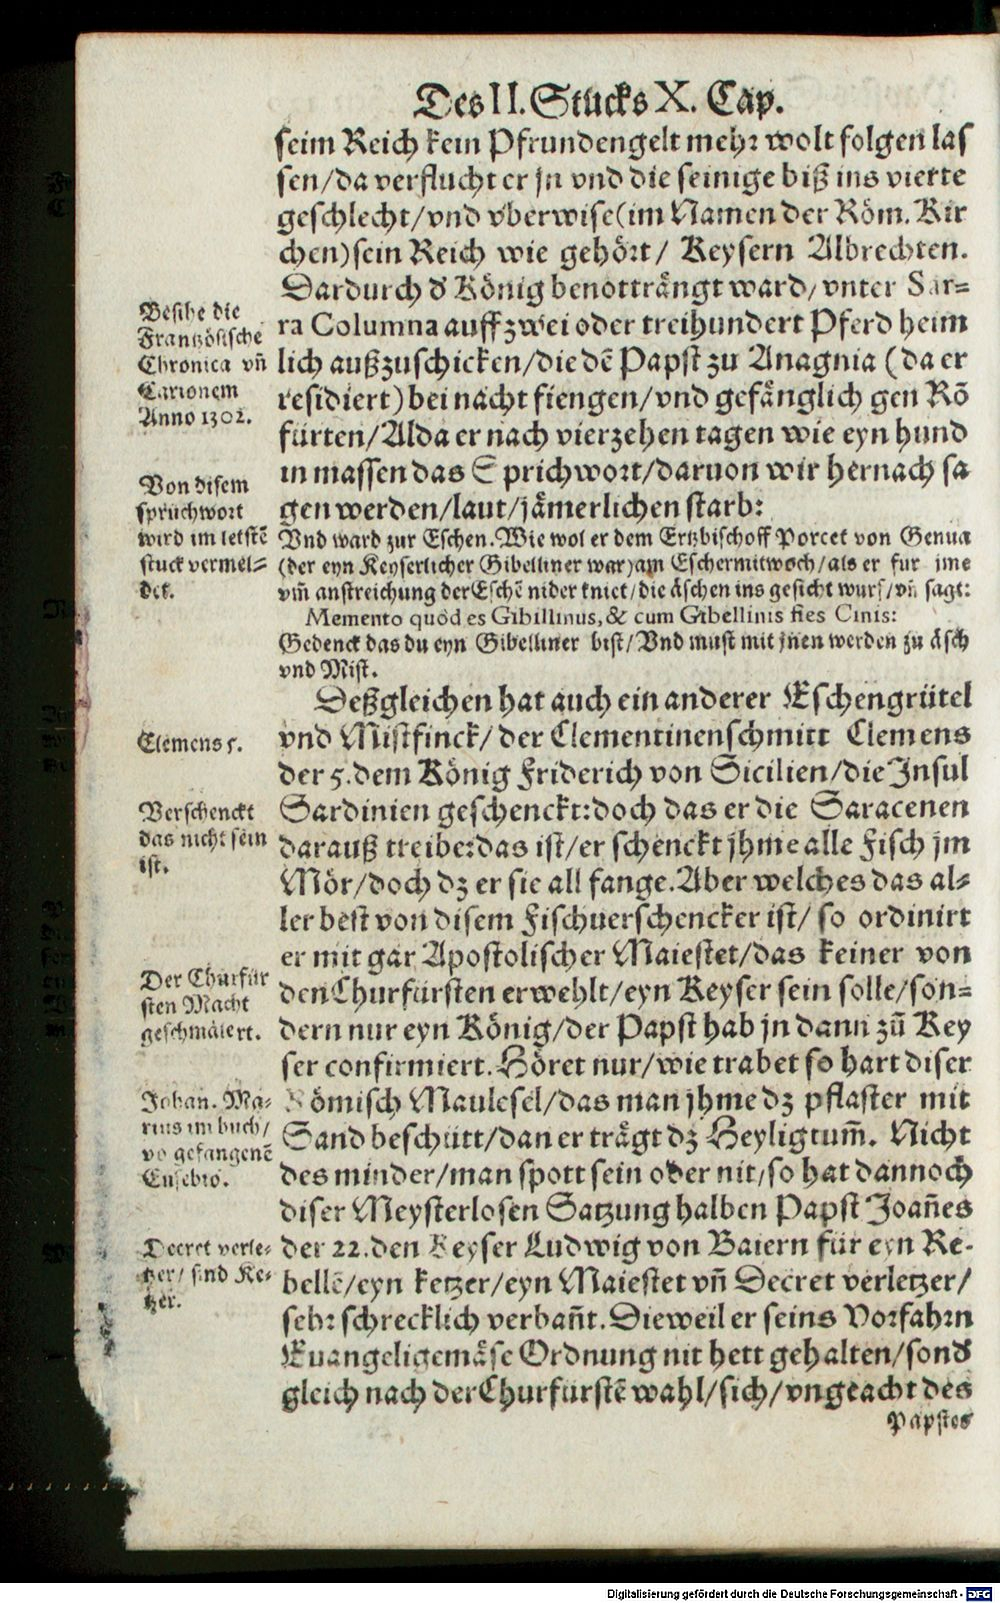 Des II. Stucks X. Cap.
seim Reich kein Pfrundengelt mehr wolt folgen las
sen/da verflucht er jn vnd die seinige biß ins vierte
geschlecht/vnd vberwise(im Namen der Röm. Kir
chen)sein Reich wie gehört/ Keysern Albrechten.
Dardurch d' König benotträngt ward/vnter Sar=
ra Columna auff zwei oder treihundert Pferd heim
lich außzuschicken/die dē Papst zu Anagnia (da er
residiert)bei nacht fiengen/vnd gefänglich gen Rō
fürten/Alda er nach vierzehen tagen wie eyn hund
in massen das Sprichwort/daruon wir hernach sa
gen werden/laut/jämerlichen starb:
Besihe die
Frantzösische
Chronica vñ
Carionem
Anno 1302.
Von disem
spruchwort
wird im letstē
stuck vermel=
det.
Vnd ward zur Eschen. Wie wol er dem Ertzbischoff Porcet von Genua
(der eyn Keyserlicher Gibelliner war)am Eschermitwoch/als er fur jme
vm̄ anstreichung der Eschē nider kniet/die äschen ins gesicht wurf/vñ sagt:
Memento quòd es Gibillinus, & cum Gibellinis fies Cinis:
Gedenck das du eyn Gibelliner bist/Vnd must mit jnen werden zu äsch
vnd Mist.
Deßgleichen hat auch ein anderer Eschengrütel
vnd Mistfinck/der Clementinenschmitt Clemens
der 5. dem König Friderich von Sicilien/die Insul
Sardinien geschenckt:doch das er die Saracenen
darauß treibe:das ist/er schenckt jhme alle Fisch jm
Mör/doch dz er sie all fange. Aber welches das al=
ler best von disem Fischuerschencker ist/ so ordinirt
er mit gar Apostolischer Maiestet/das keiner von
den Churfürsten erwehlt/eyn Keyser sein solle/son=
dern nur eyn König/der Papst hab jn dann zū Key
ser confirmiert. Höret nur/wie trabet so hart diser
Römisch Maulesel/das man jhme dz pflaster mit
Sand beschütt/dan er trägt dz Heyligtum̄. Nicht
des minder/man spott sein oder nit/so hat dannoch
diser Meysterlosen Satzung halben Papst Joañes
der 22. den Keyser Ludwig von Baiern für eyn Re-
bellē/eyn ketzer/eyn Maiestet vñ Decret verletzer/
sehr schrecklich verbañt. Dieweil er seins Vorfahrn
Euangeligemäse Ordnung nit hett gehalten/sond'
gleich nach der Churfürstē wahl/sich/vngeacht des
Clemens 5.
Verschenckt
das nicht sein
ist.
Der Churfür
sten Macht
geschmälert.
Johan. Ma=
rius im buch/
vō gefangenē
Eusebio.
Decret verle=
tzer/ sind Ke=
tzer.
Papstes
Digitalisierung gefördert durch die Deutsche Forschungsgemeinschaft - DFG